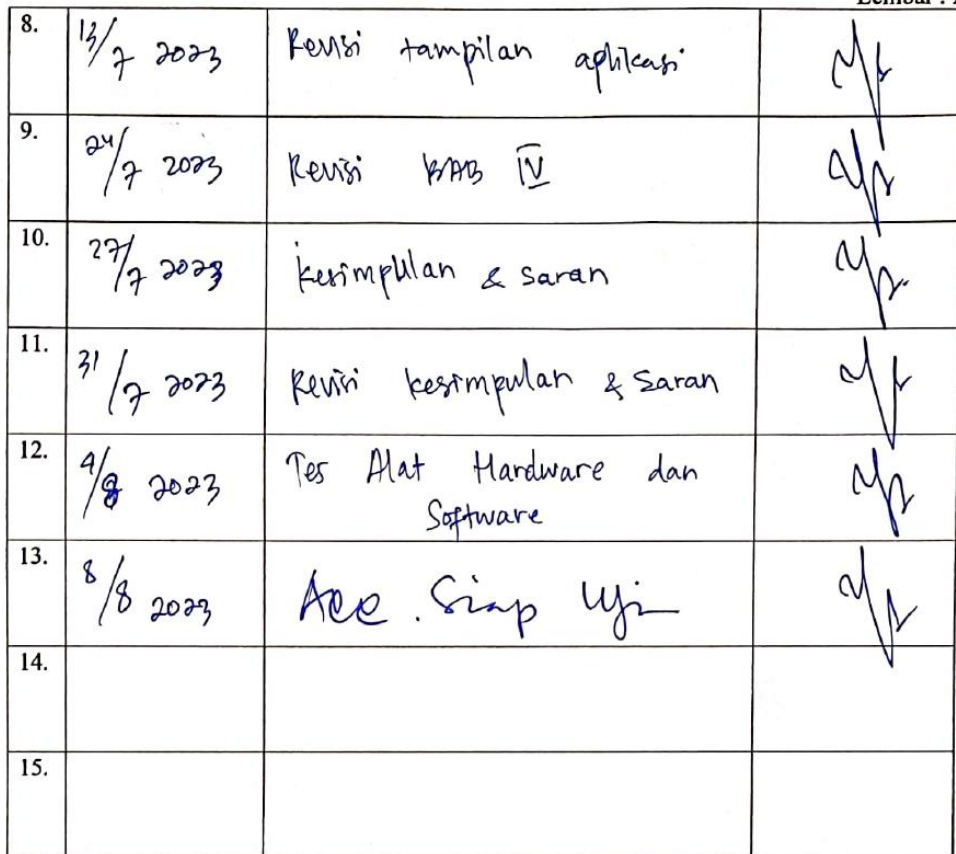 8. 13/7 2023 Revisi tampilan aplikasi
9. 24/7 2023 Revisi BAB IV
10. 27/7 2023 Kesimpulan & Saran
11. 31/7 2023 Revisi kesimpulan & Saran
12. 4/8 2023 Tes Alat Hardware dan
Software
13. 8/8 2023 Acc. Siap Uji
14.
15.